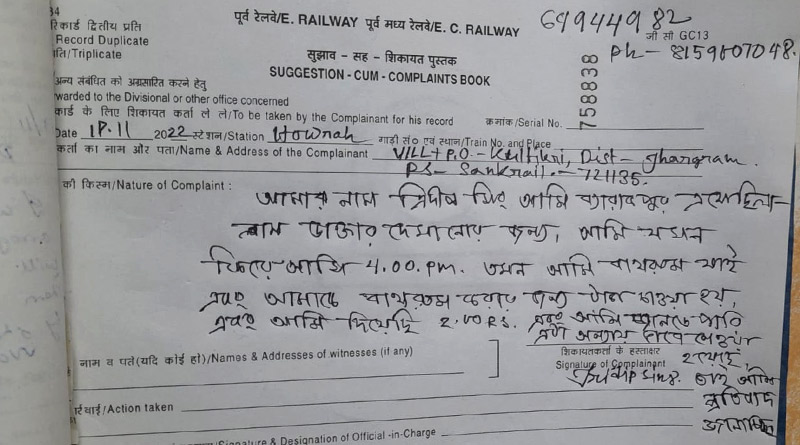 पूर्व रेलवे/E. RAILWAY पूर्व मध्य रेलवे/E. C. RAILWAY
69944982
जी सी GC13
Ph- 8159607048.
रिकार्ड द्वितीय प्रति
Record Duplicate
/Triplicate
सुझाव - सह - शिकायत पुस्तक
SUGGESTION - CUM - COMPLAINTS BOOK
अन्य संबंधित को अग्रसारित करने हेतु
warded to the Divisional or other office concerned
कार्ड के लिए शिकायत कर्ता ले ले/To be taken by the Complainant for his record
क्रमांक/Serial No.
758838
Date 18.11 2022 स्टेशन/Station Howrah गाड़ी सं० एवं स्थान/Train No. and Place
कर्ता का नाम और पता/Name & Address of the Complainant VILL+P.O- Dist- Jhargram.
PS- Sankrail.-721135.
की किस्म/Nature of Complaint :
আমার নাম ত্রিদীপ সিং আমি ব্যারাকপুর এসেছিলা-
লাম ডাক্তার দেখানোর জন্য, আমি যখন
ফিরে আসি 4.00.pm. তখন আমি বাথরুম যাই
এবং আমাকে বাথরুম করার জন্য টাকা চাওয়া হয়,
এবং আমি দিয়েছি 2.00 RS. এবং আমি জানতে পারি
এটা অন্যায় ভাবে নেওয়া
হয়েছে,
नाम व पते(यदि कोई हो)/Names & Addresses of witnesses (if any)
शिकायतकर्ता के हस्ताक्षर
Signature of Complainant
তাই আমি
প্রতিবাদ
জানাচ্ছি
/Action taken
/Signature & Designation of Official -in-Charge